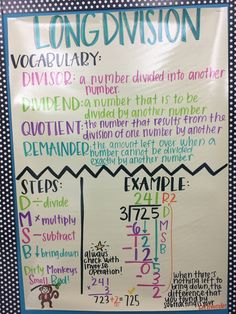 LONG DIVISION
VOCABULARY:
DIVISOR: a number divided into another
number.
DIVIDEND: a number that is to be
divided by another number
QUOTIENT: the number that results from the
division of one number by another
REMAINDER: the amount left over when a
number cannot be divided
exactly by another number
STEPS:
D → ÷ divide
M → × multiply
S → − subtract
B → ↓ bring down
Dirty Monkeys
Smell Bad!
EXAMPLE:
241 R2
3)725
-6
12
-12
05
-3
2
D
M
S
B
always
check with
inverse
operation!
241
×3
723 + 2 = 725
when there's
nothing left
to bring down,
the difference
that you found by
subtracting is your
remainder